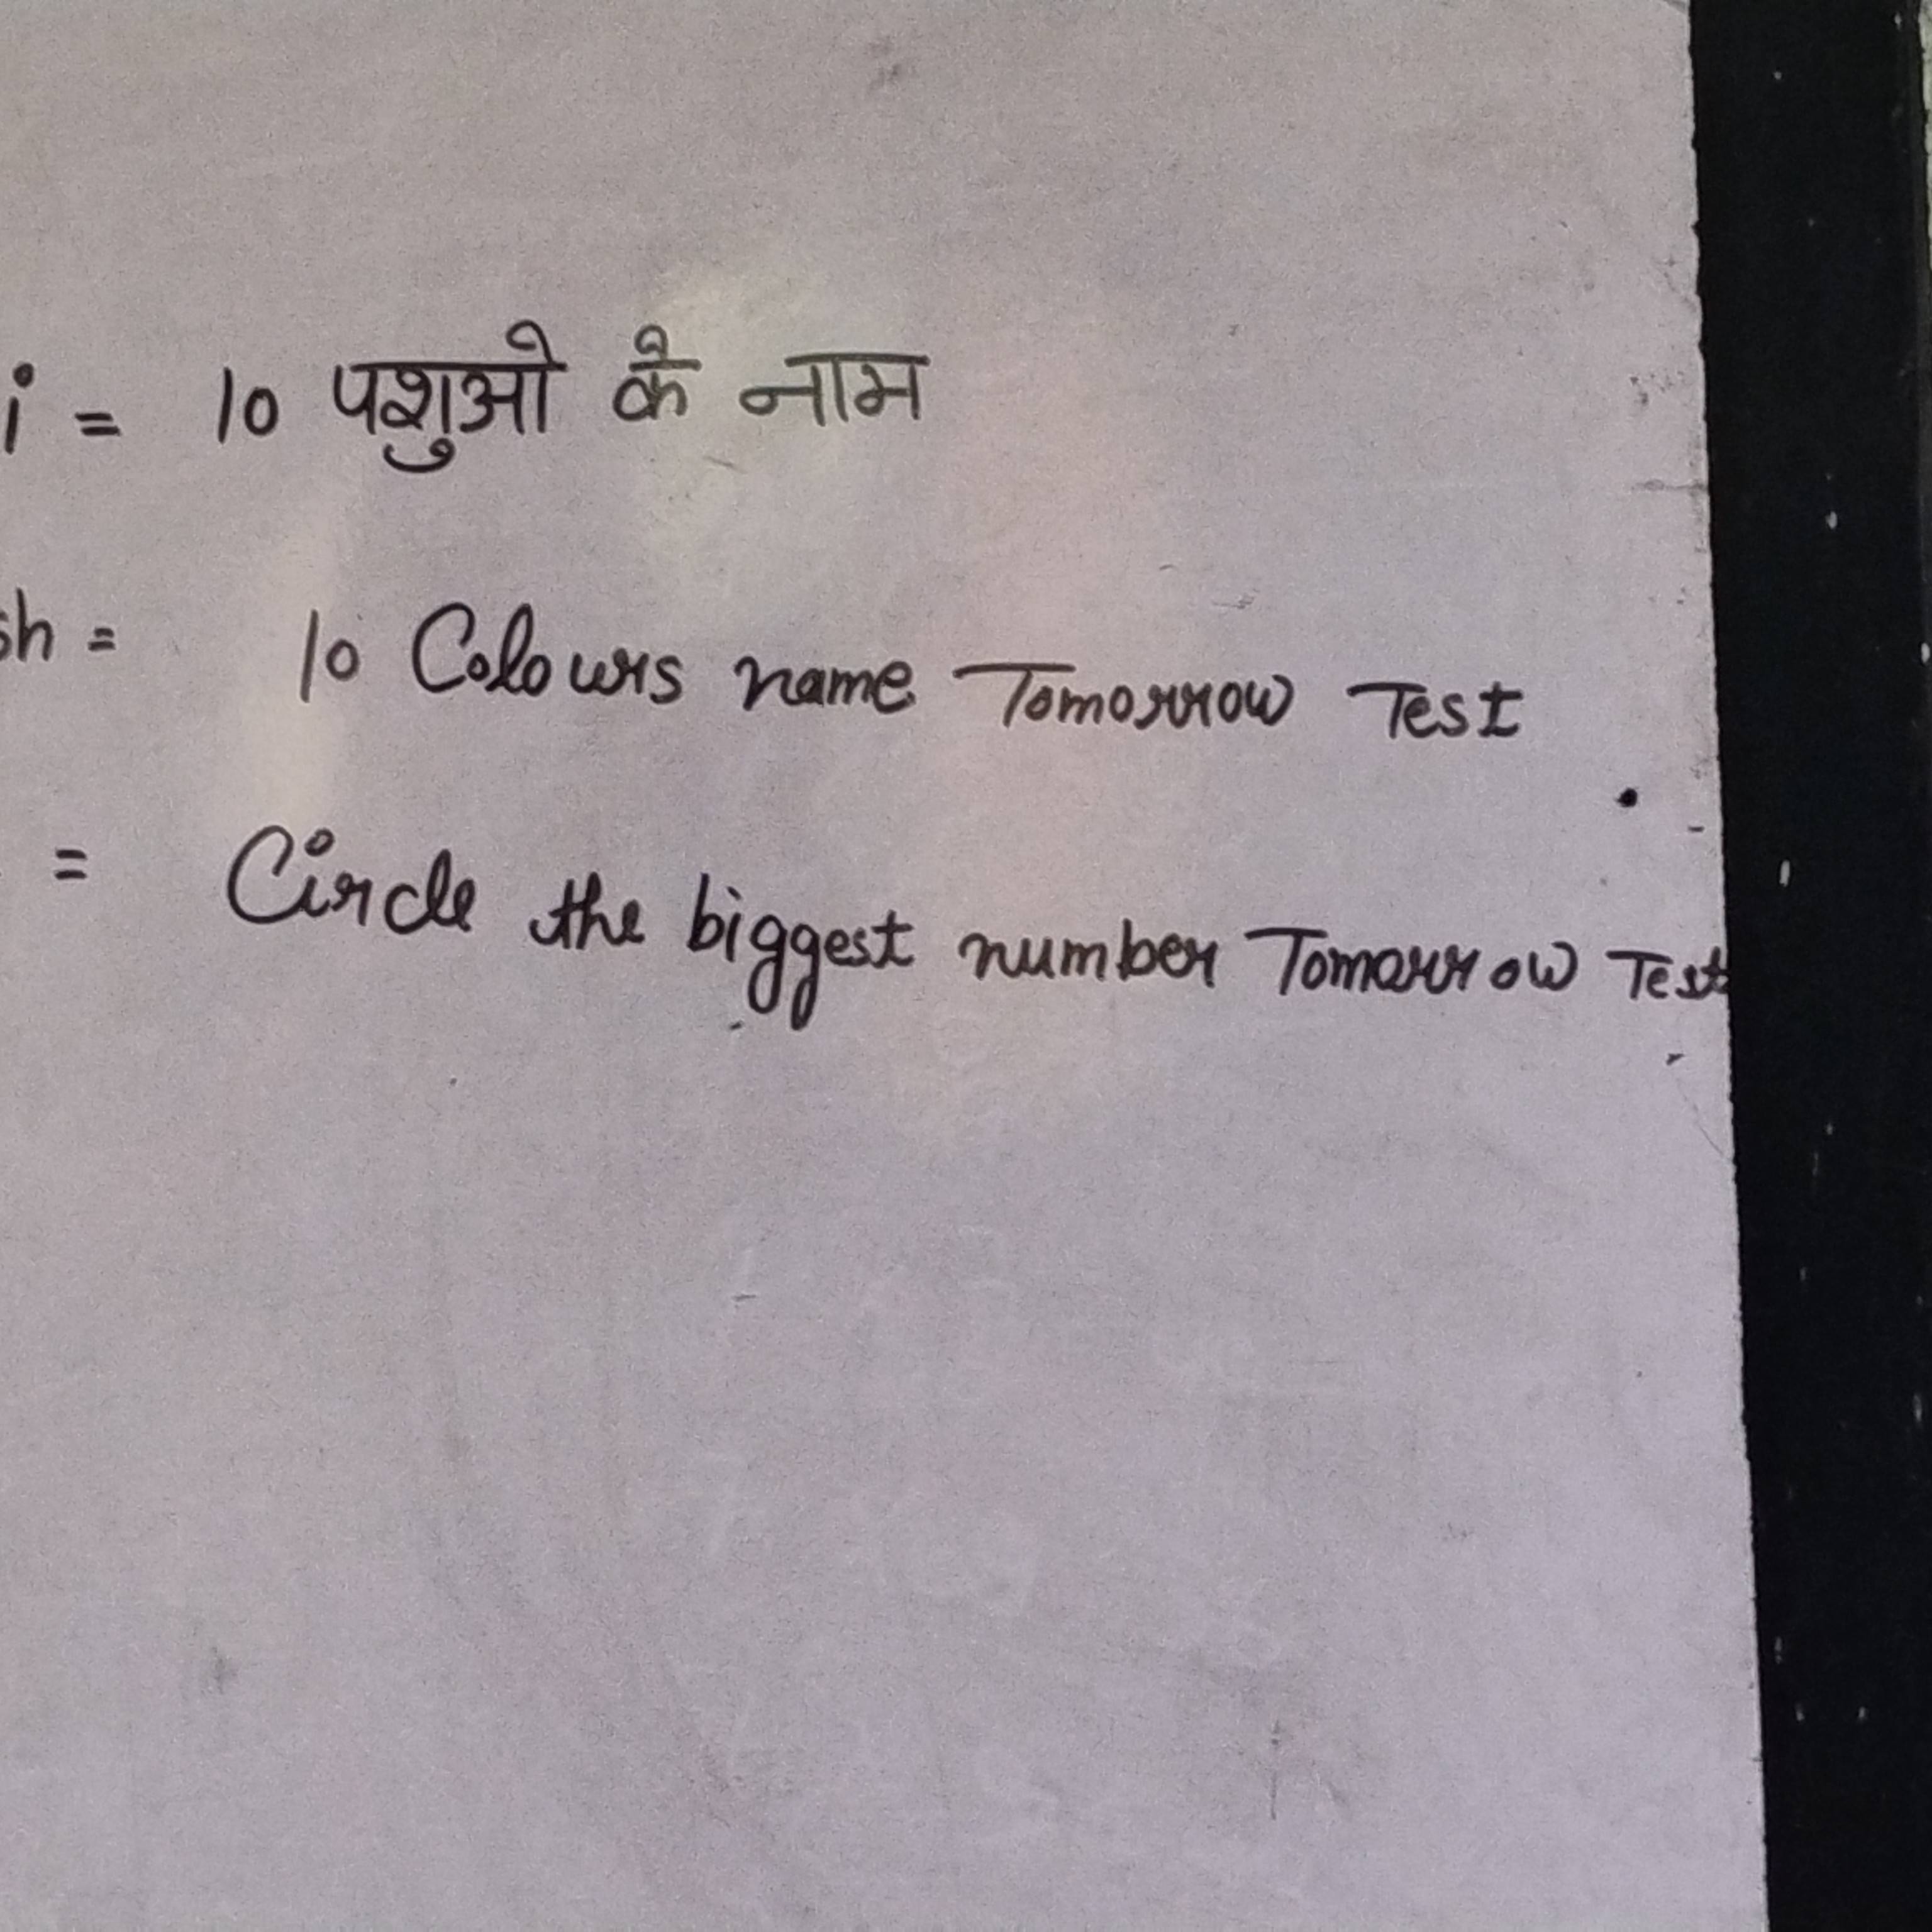 i = 10 पशुओ के नाम
sh = 10 Colours name Tomorrow Test
= Circle the biggest number Tomorrow Test